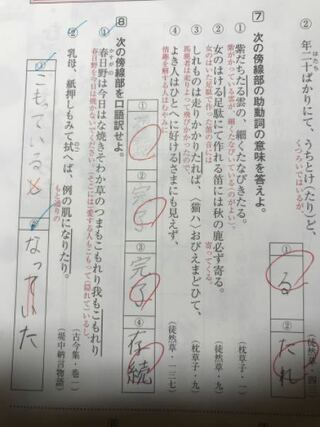 ② 年二十ばかりにて、うちとけ(たり)ど、
はたち
くつろいではいるが、
(徒然草・
① る
② たれ
7 次の傍線部の助動詞の意味を答えよ。
① 紫だちたる雲の、細くたなびきたる。
紫がかっている雲が、細くたなびいている(のがよい)。
(枕草子・一)
② 女のはける足駄にて作れる笛には秋の鹿必ず寄る。
寄ってくる。
(徒然草・九)
③ しれものは走りかかりたれば、(猫ハ)おびえまどひて、
(枕草子・九)
④ よき人はひとへに好けるさまにも見えず、
情趣を解する人はむやみに
(徒然草・一三七)
①
② 完了
③ 完了
④ 存続
8 次の傍線部を口語訳せよ。
① 春日野は今日はな焼きそわか草のつまもこもれり我もこもれり
春日野を今日は焼かないでください。(そこには)愛する人もこもって(隠れて)いるし、
(古今集・巻一)
② 乳母、紙押しもみて拭へば、例の肌になりたり。
もと通りの
(堤中納言物語)
① こもっている
② なった